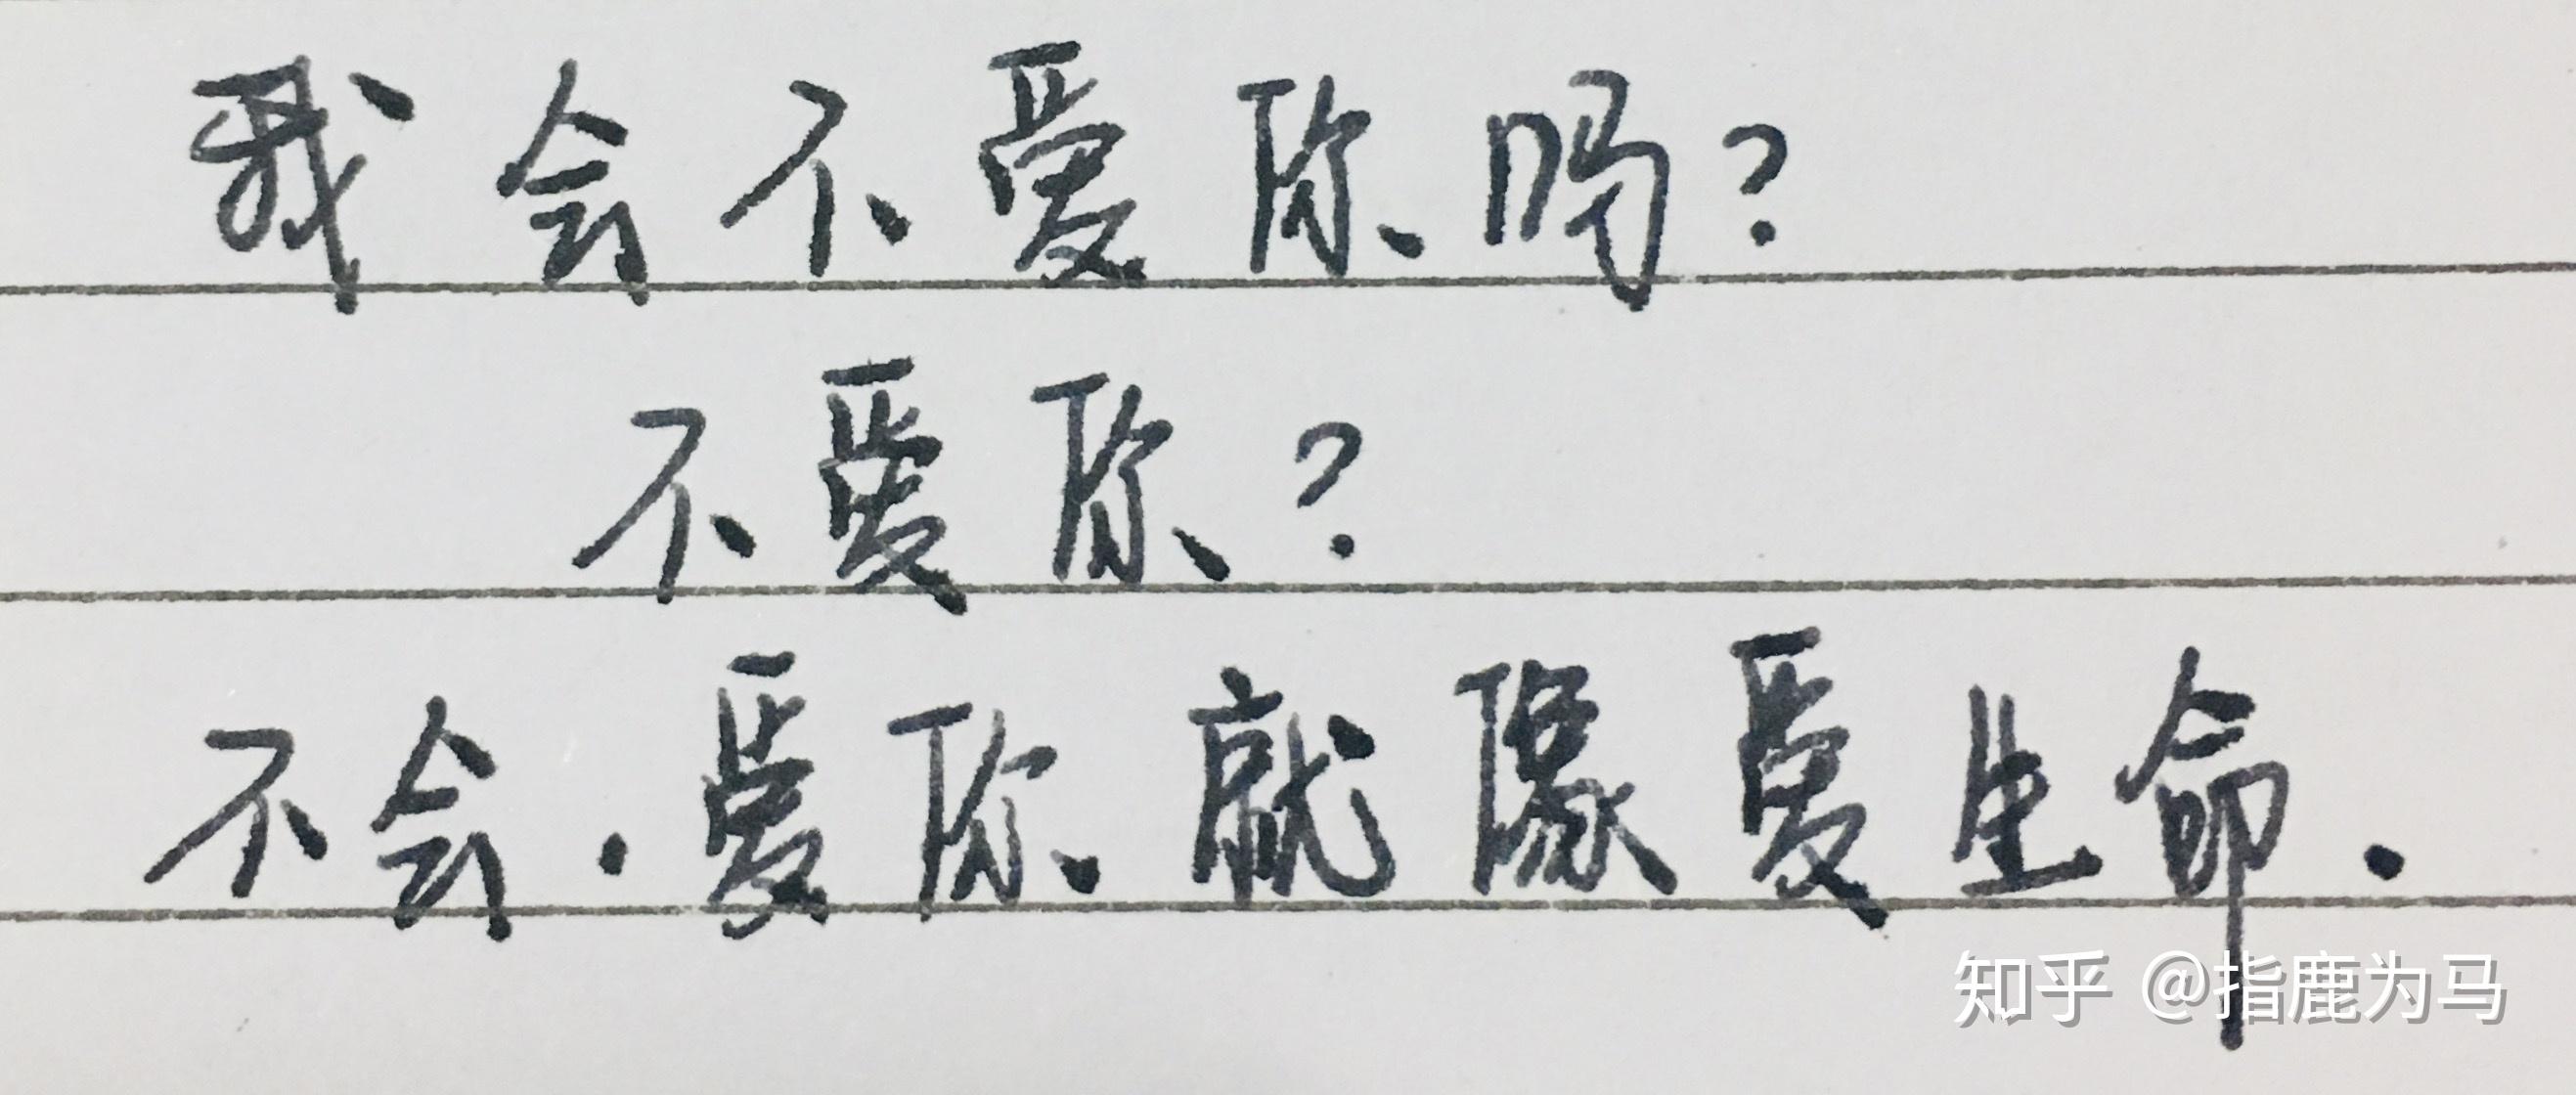 我会不爱你吗?
不爱你?
不会.爱你就像爱生命.
知乎 @指鹿为马